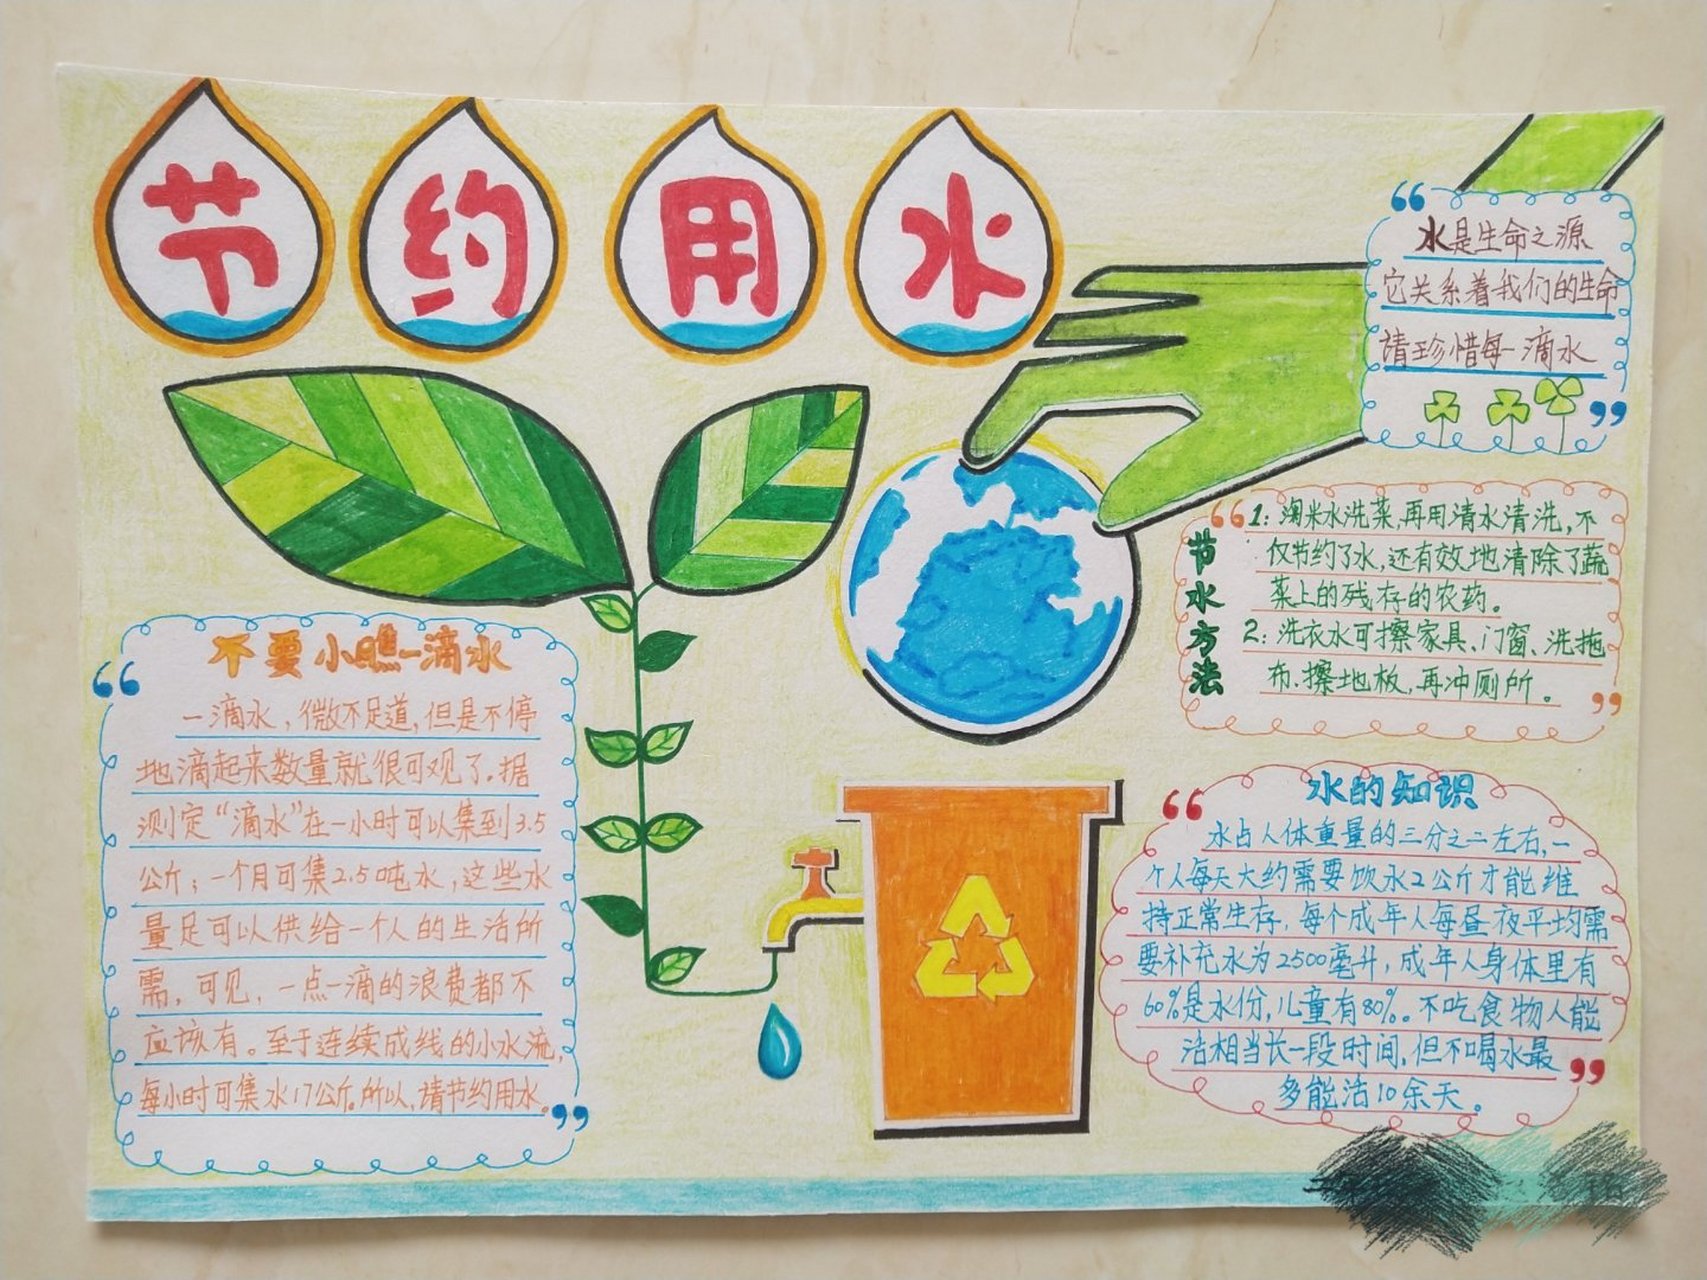 节约用水
水是生命之源
它关系着我们的生命
请珍惜每一滴水
节水方法
1：淘米水洗菜,再用清水清洗,不
仅节约了水,还有效地清除了蔬
菜上的残存的农药。
2：洗衣水可擦家具、门窗、洗拖
布、擦地板,再冲厕所。
不要小瞧一滴水
一滴水，微不足道,但是不停
地滴起来数量就很可观了.据
测定“滴水”在一小时可以集到3.5
公斤；一个月可集2.5吨水，这些水
量足可以供给一个人的生活所
需，可见，一点一滴的浪费都不
应该有。至于连续成线的小水流,
每小时可集水17公斤。所以,请节约用水。
水的知识
水占人体重量的三分之二左右,一
个人每天大约需要饮水2公斤才能维
持正常生存,每个成年人每昼夜平均需
要补充水为2500毫升,成年人身体里有
60%是水份,儿童有80%。不吃食物人能
活相当长一段时间,但不喝水最
多能活10余天。